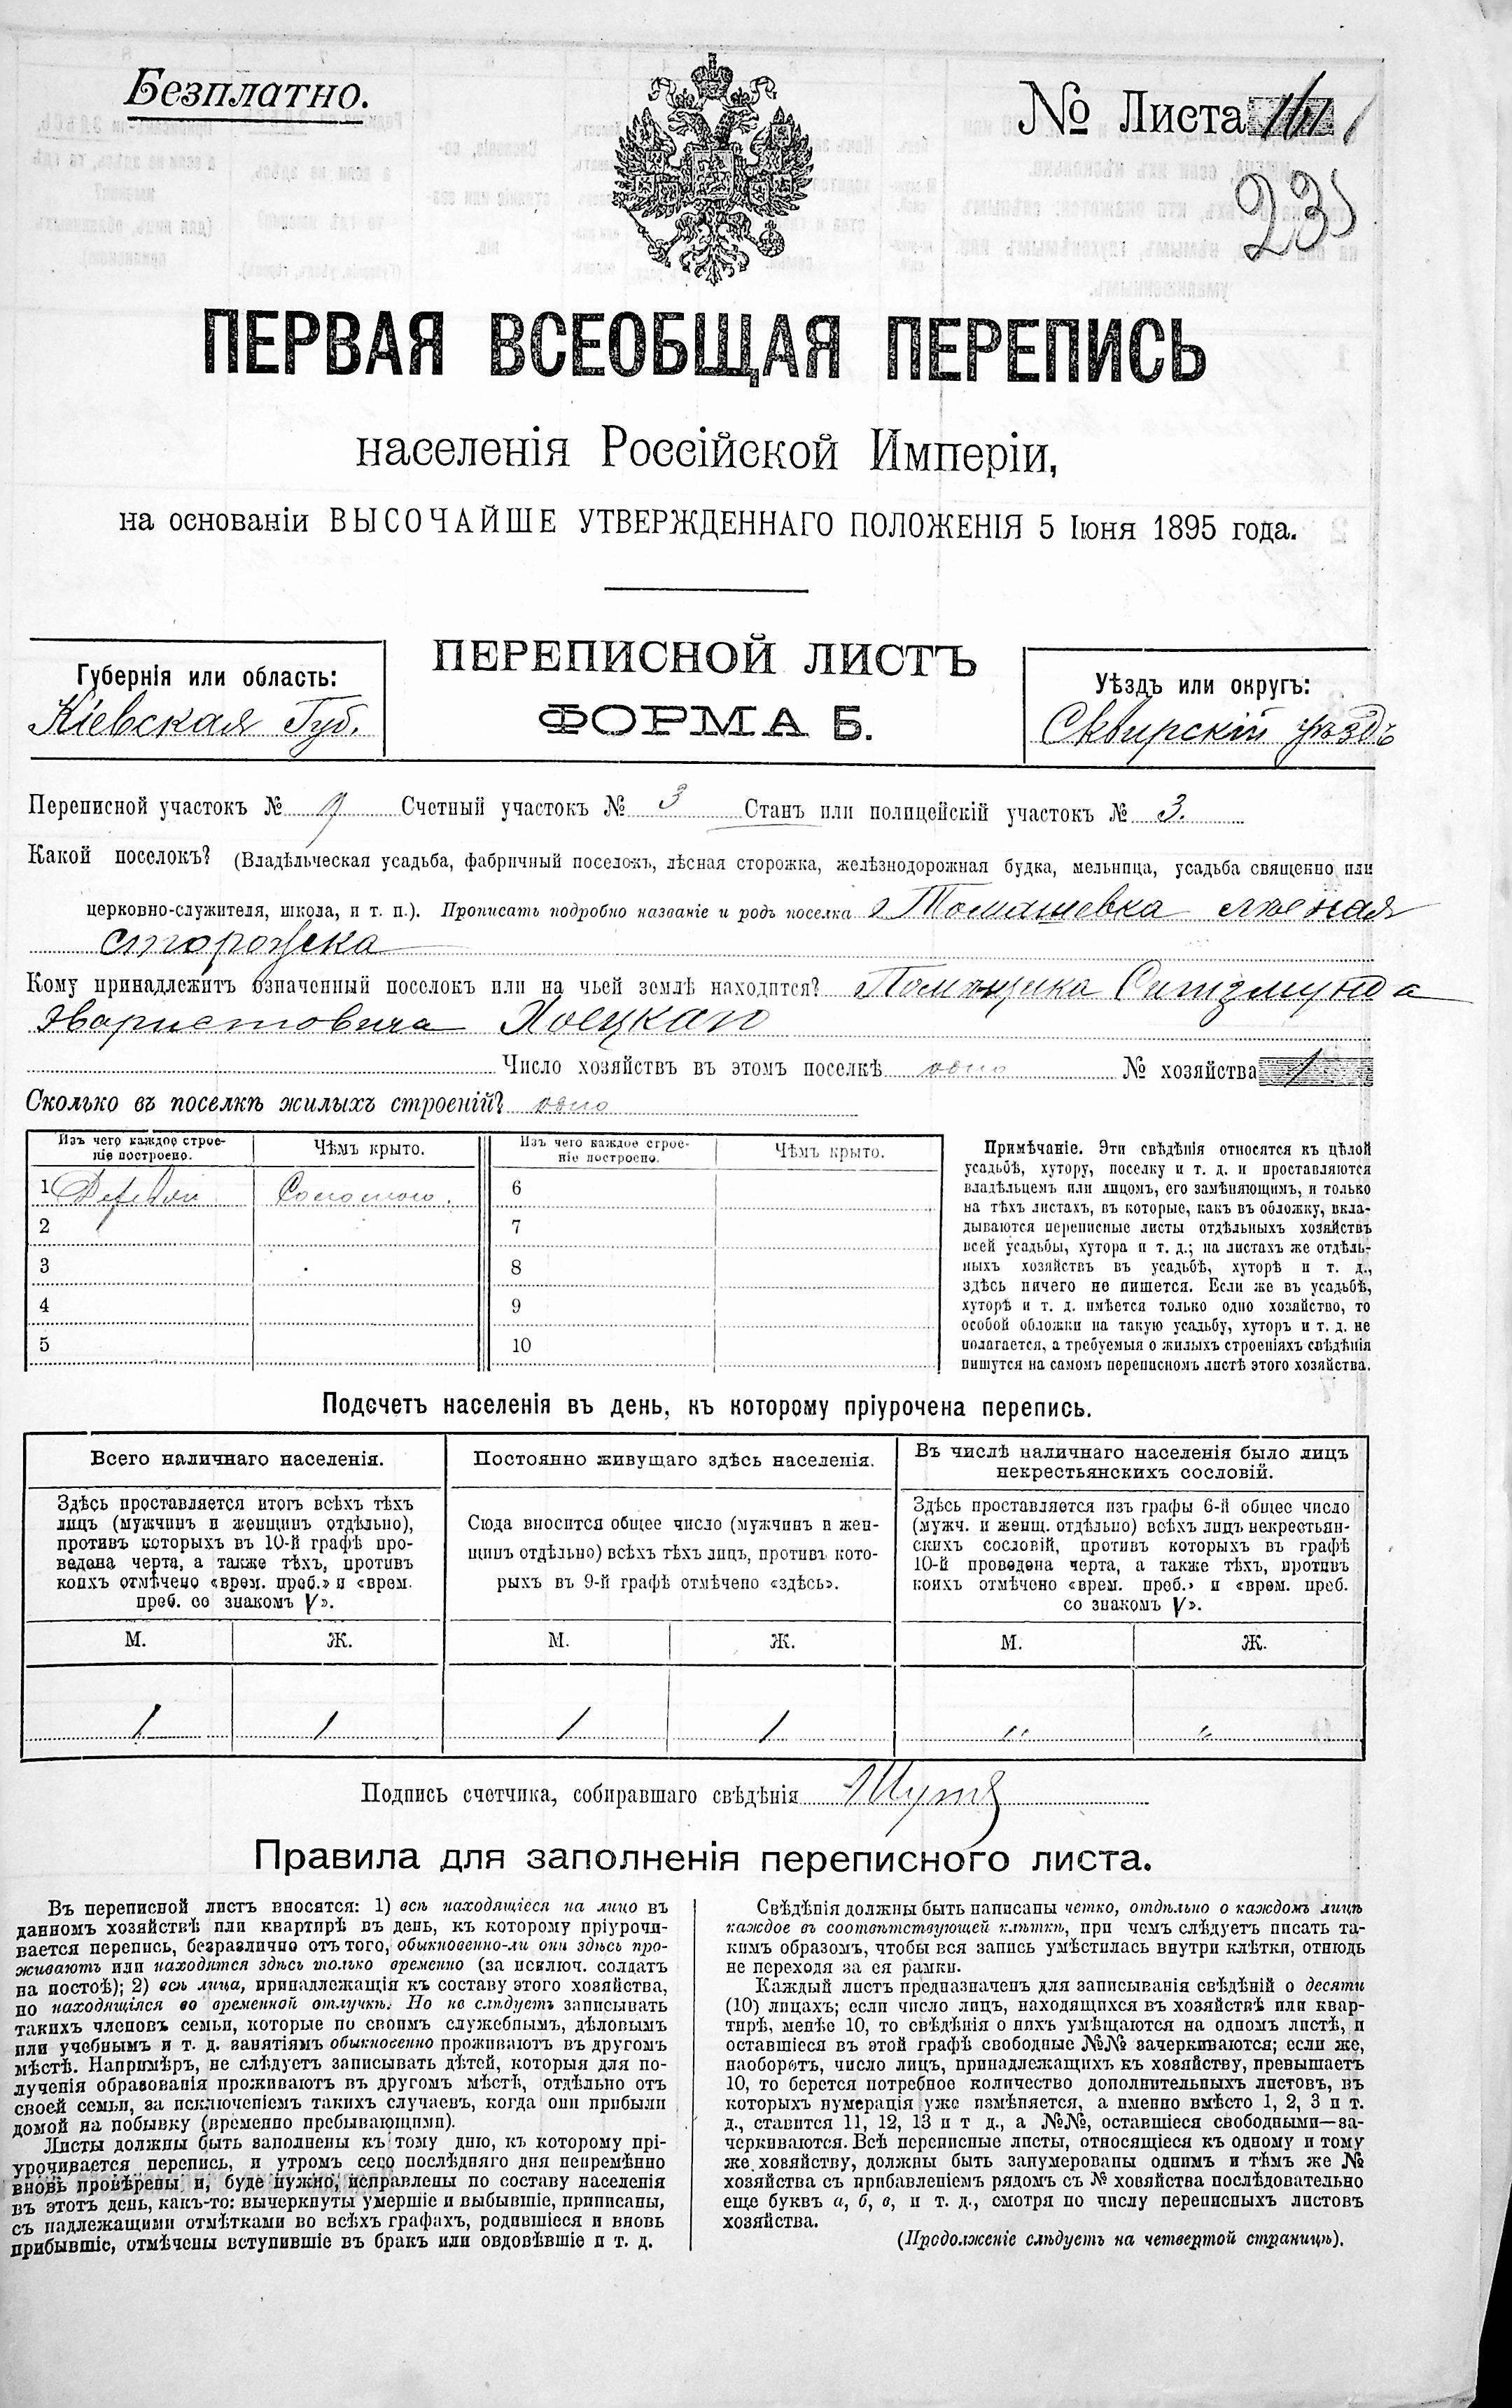 Безплатно.
№ Листа
235
ПЕРВАЯ ВСЕОБЩАЯ ПЕРЕПИСЬ
населенія Россійской Имперіи,
на основаніи ВЫСОЧАЙШЕ УТВЕРЖДЕННАГО ПОЛОЖЕНІЯ 5 Іюня 1895 года.
ПЕРЕПИСНОЙ ЛИСТЪ
ФОРМА Б.
Губернія или область:
Кіевская Губ.
Уѣздъ или округъ:
Сквирскій уѣздъ
Переписной участокъ № 9 Счетный участокъ № 3 Станъ или полицейскій участокъ № 3.
Какой поселокъ? (Владѣльческая усадьба, фабричный поселокъ, лѣсная сторожка, желѣзнодорожная будка, мельница, усадьба священно или
церковно-служителя, школа, и т. п.). Прописать подробно названіе и родъ поселка Томашевка лѣсная
сторожка
Кому принадлежитъ означенный поселокъ или на чьей землѣ находится? Помѣщика Сигизмунда
Эваристовича
Число хозяйствъ въ этомъ поселкѣ одно № хозяйства 1
Сколько въ поселкѣ жилыхъ строеній? одно
Изъ чего каждое строе-
ніе построено.
Чѣмъ крыто.
Изъ чего каждое строе-
ніе построено.
Чѣмъ крыто.
1 Соломою. 6
2 7
3 8
4 9
5 10
Примѣчаніе. Эти свѣдѣнія относятся къ цѣлой
усадьбѣ, хутору, поселку и т. д. и проставляются
владѣльцемъ или лицомъ, его замѣняющимъ, и только
на тѣхъ листахъ, въ которые, какъ въ обложку, вкла-
дываются переписные листы отдѣльныхъ хозяйствъ
всей усадьбы, хутора и т. д.; на листахъ же отдѣль-
ныхъ хозяйствъ въ усадьбѣ, хуторѣ и т. д.,
здѣсь ничего не пишется. Если же въ усадьбѣ,
хуторѣ и т. д. имѣется только одно хозяйство, то
особой обложки на такую усадьбу, хуторъ и т. д. не
полагается, а требуемыя о жилыхъ строеніяхъ свѣдѣнія
пишутся на самомъ переписномъ листѣ этого хозяйства.
Подсчетъ населенія въ день, къ которому пріурочена перепись.
Всего наличнаго населенія.
Здѣсь проставляется итогъ всѣхъ тѣхъ
лицъ (мужчинъ и женщинъ отдѣльно),
противъ которыхъ въ 10-й графѣ про-
ведена черта, а также тѣхъ, противъ
коихъ отмѣчено «врем. преб.» и «врем.
преб. со знакомъ V».
Постоянно живущаго здѣсь населенія.
Сюда вносится общее число (мужчинъ и жен-
щинъ отдѣльно) всѣхъ тѣхъ лицъ, противъ кото-
рыхъ въ 9-й графѣ отмѣчено «здѣсь».
Въ числѣ наличнаго населенія было лицъ
некрестьянскихъ сословій.
Здѣсь проставляется изъ графы 6-й общее число
(мужч. и женщ. отдѣльно) всѣхъ лицъ некрестьян-
скихъ сословій, противъ которыхъ въ графѣ
10-й проведена черта, а также тѣхъ, противъ
коихъ отмѣчено «врем. преб.» и «врем. преб.
со знакомъ V».
М. Ж. М. Ж. М. Ж.
1 1 1 1 " "
Подпись счетчика, собиравшаго свѣдѣнія
Правила для заполненія переписного листа.
Въ переписной листъ вносятся: 1) всѣ находящіеся на лицо въ
данномъ хозяйствѣ или квартирѣ въ день, къ которому пріурочи-
вается перепись, безразлично отъ того, обыкновенно-ли они здѣсь про-
живаютъ или находятся здѣсь только временно (за исключ. солдатъ
на постоѣ); 2) всѣ лица, принадлежащія къ составу этого хозяйства,
но находящіяся во временной отлучкѣ. Но не слѣдуетъ записывать
такихъ членовъ семьи, которые по своимъ служебнымъ, дѣловымъ
или учебнымъ и т. д. занятіямъ обыкновенно проживаютъ въ другомъ
мѣстѣ. Напримѣръ, не слѣдуетъ записывать дѣтей, которыя для по-
лученія образованія проживаютъ въ другомъ мѣстѣ, отдѣльно отъ
своей семьи, за исключеніемъ такихъ случаевъ, когда они прибыли
домой на побывку (временно пребывающими).
Листы должны быть заполнены къ тому дню, къ которому прі-
урочивается перепись, и утромъ сего послѣдняго дня непремѣнно
вновь провѣрены и, буде нужно, исправлены по составу населенія
въ этотъ день, какъ-то: вычеркнуты умершіе и выбывшіе, приписаны,
съ надлежащими отмѣтками во всѣхъ графахъ, родившіеся и вновь
прибывшіе, отмѣчены вступившіе въ бракъ или овдовѣвшіе и т. д.
Свѣдѣнія должны быть написаны четко, отдѣльно о каждомъ лицѣ
каждое въ соотвѣтствующей клѣткѣ, при чемъ слѣдуетъ писать та-
кимъ образомъ, чтобы вся запись умѣстилась внутри клѣтки, отнюдь
не переходя за ея рамки.
Каждый листъ предназначенъ для записыванія свѣдѣній о десяти
(10) лицахъ; если число лицъ, находящихся въ хозяйствѣ или квар-
тирѣ, менѣе 10, то свѣдѣнія о нихъ умѣщаются на одномъ листѣ, и
оставшіеся въ этой графѣ свободные №№ зачеркиваются; если же,
наоборотъ, число лицъ, принадлежащихъ къ хозяйству, превышаетъ
10, то берется потребное количество дополнительныхъ листовъ, въ
которыхъ нумерація уже измѣняется, а именно вмѣсто 1, 2, 3 и т.
д., ставится 11, 12, 13 и т д., а №№, оставшіеся свободными—за-
черкиваются. Всѣ переписные листы, относящіеся къ одному и тому
же хозяйству, должны быть занумерованы однимъ и тѣмъ же №
хозяйства съ прибавленіемъ рядомъ съ № хозяйства послѣдовательно
еще буквъ а, б, в, и т. д., смотря по числу переписныхъ листовъ
хозяйства.
(Продолженіе слѣдуетъ на четвертой страницѣ).